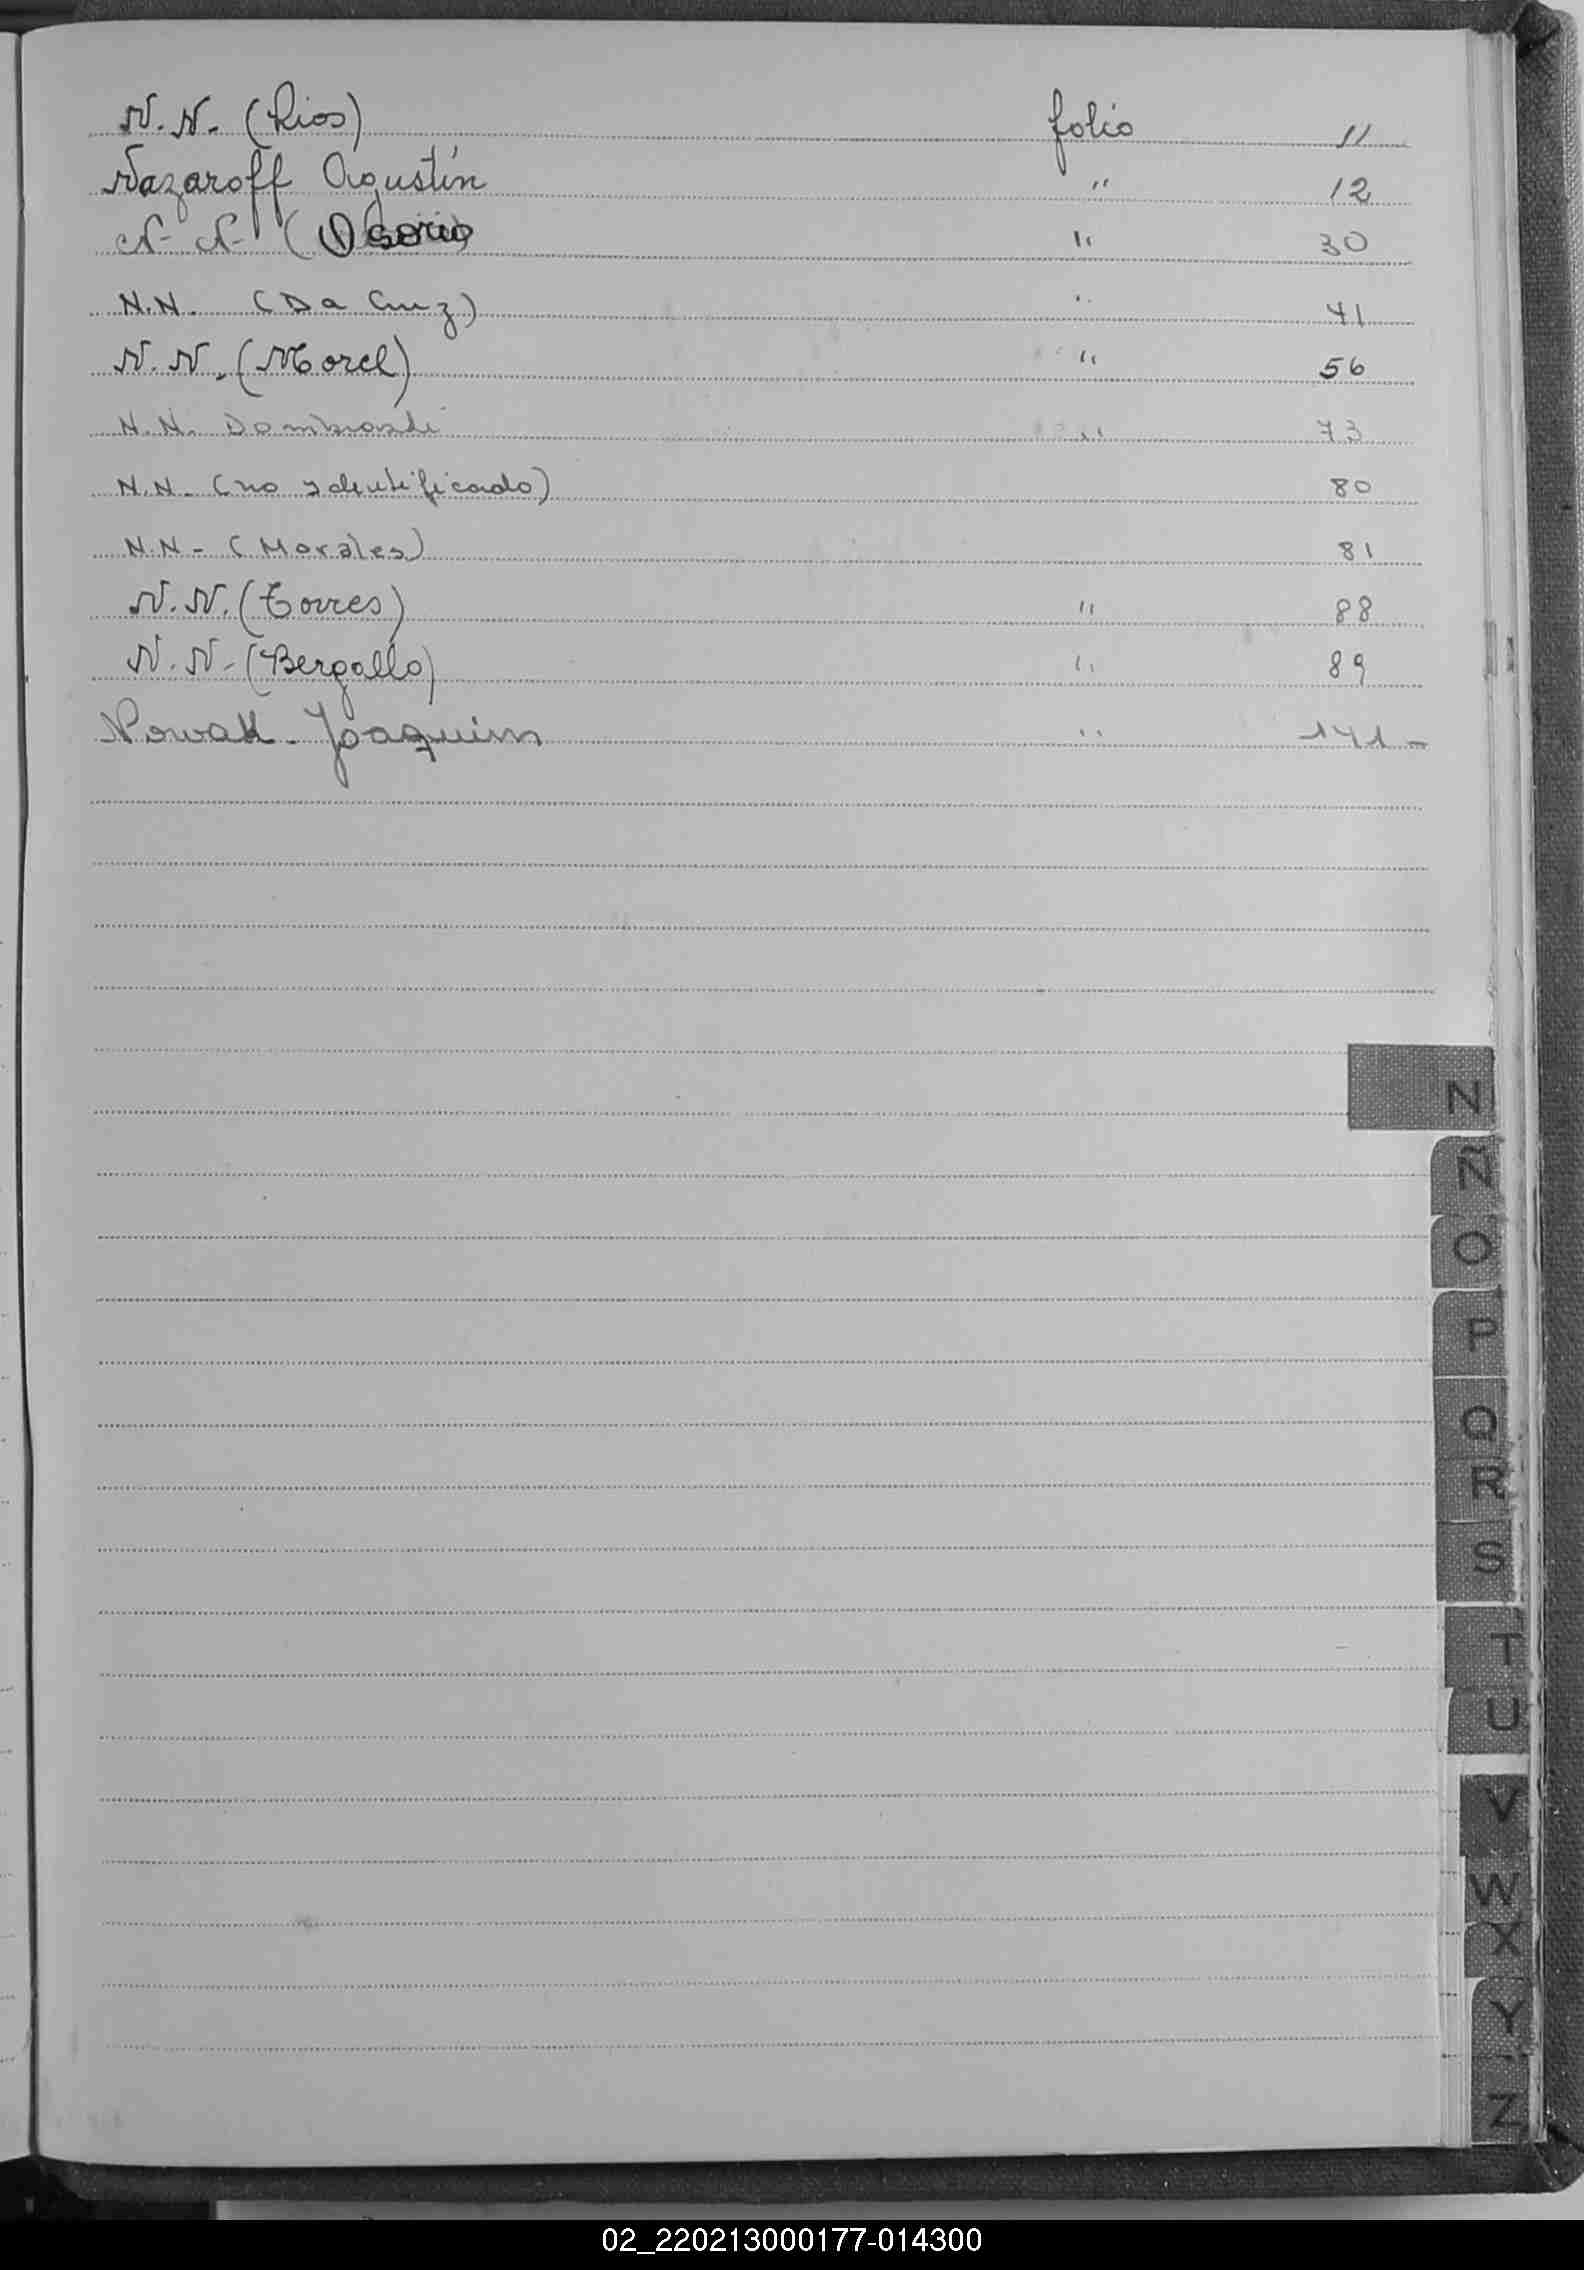 N. N. (Rios) folio 11
Nazaroff Agustín " 12
N- N- (Osorio " 30
N.N. (Da Cruz) " 41
N. N. (Morel) " 56
N.N. Dombroski " 73
N.N. (no identificado) 80
N.N- (Morales) 81
N. N. (Torres) " 88
N. N- (Bergallo) " 89
Nowak - Joaquim " 141 -
N
Ñ
O
P
Q
R
S
T
U
V
W
X
Y
Z
02_220213000177-014300